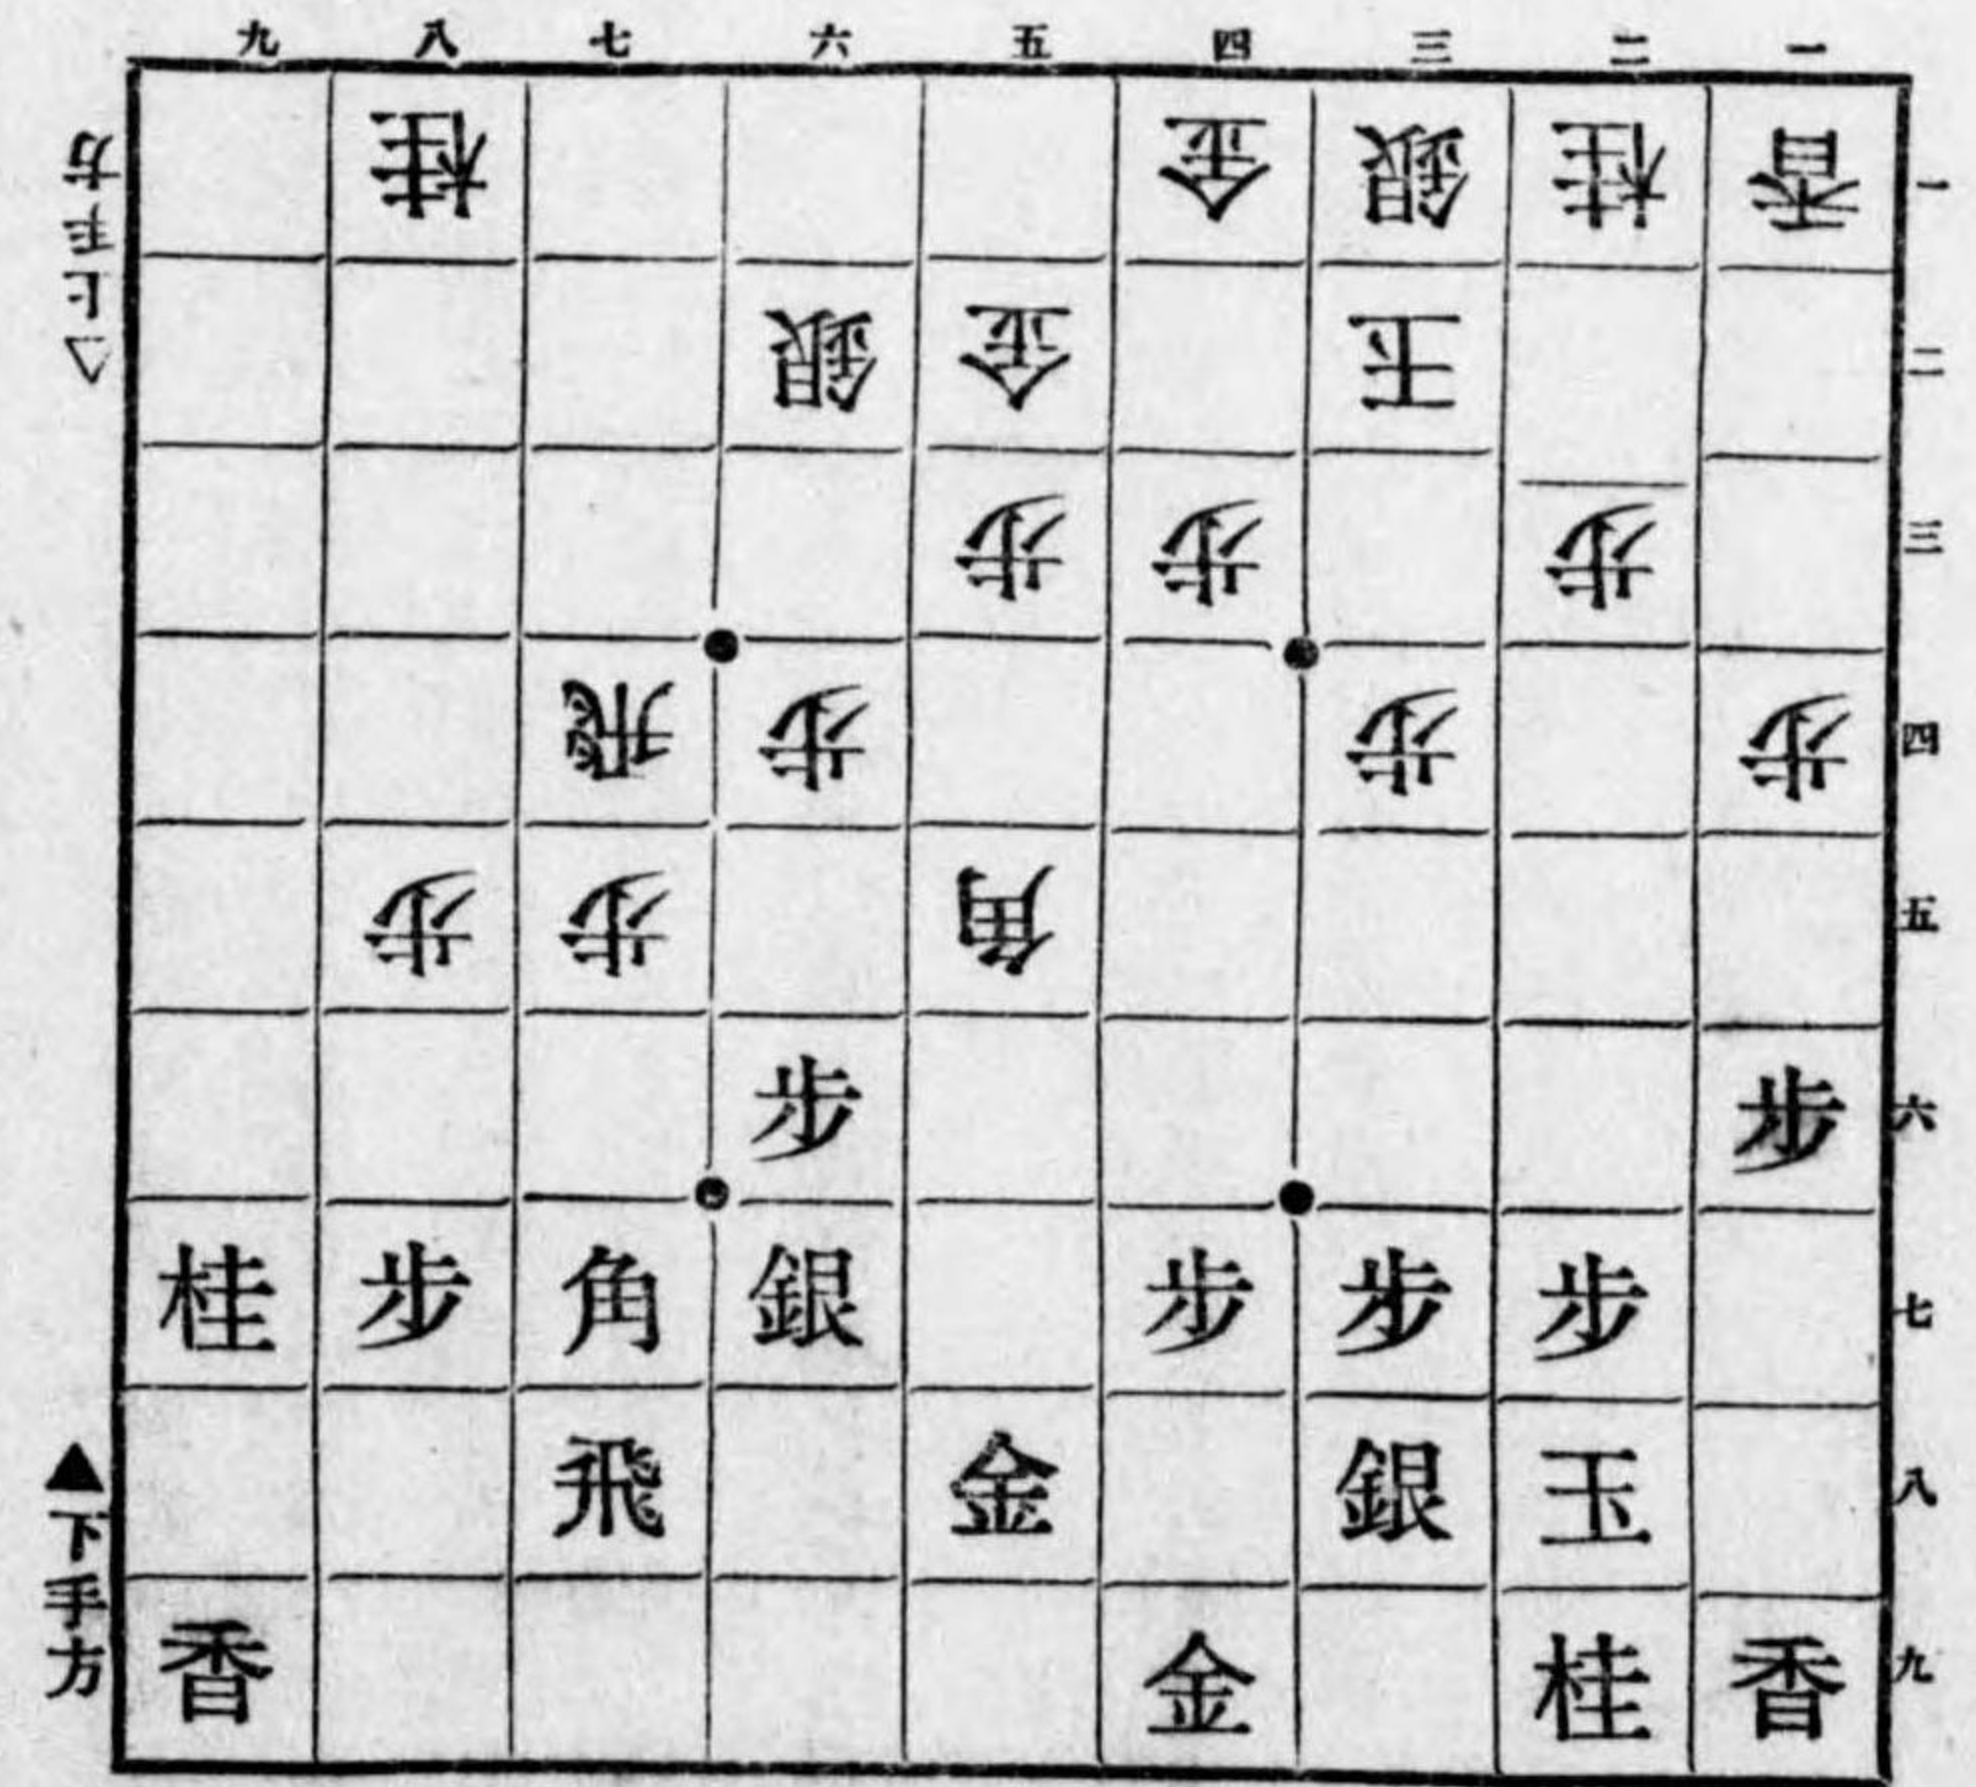 九 八 七 六 五 四 三 二 一
△上手方
桂 金 銀 桂 香 一
銀 金 王 二
歩 歩 歩 三
飛 歩 歩 歩 四
歩 歩 角 五
歩 歩 六
桂 歩 角 銀 歩 歩 歩 七
飛 金 銀 玉 八
香 金 桂 香 九
▲下手方